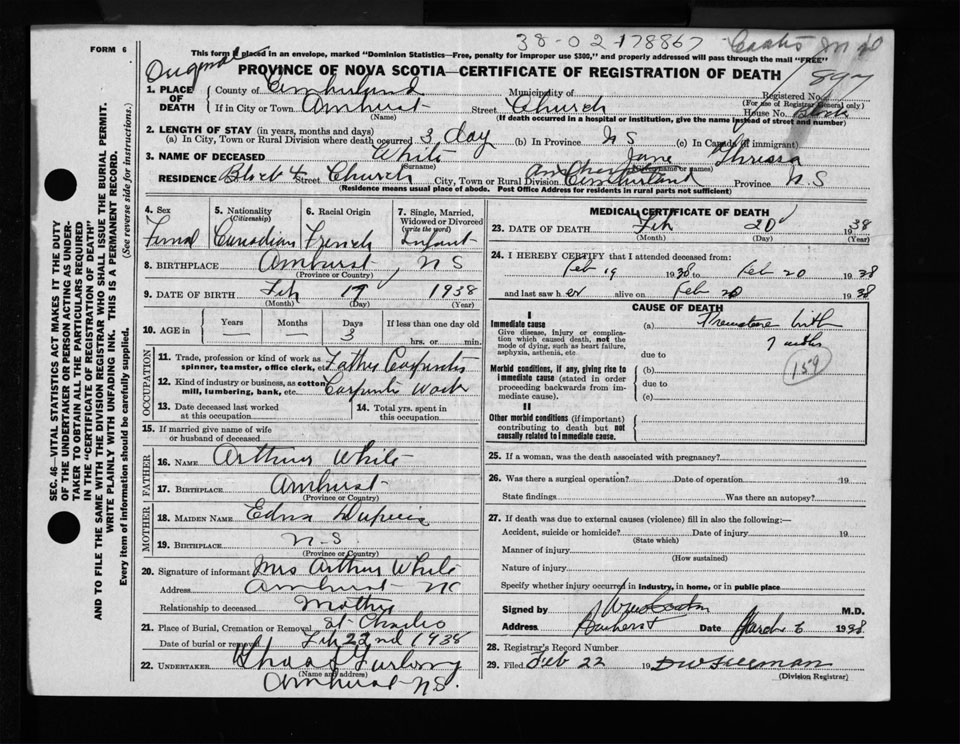 FORM 6
38-02-178867
This form if placed in an envelope, marked "Dominion Statistics—Free, penalty for improper use $300," and properly addressed will pass through the mail "FREE"
Original
PROVINCE OF NOVA SCOTIA—CERTIFICATE OF REGISTRATION OF DEATH
1. PLACE OF DEATH
County of Cumberland Municipality of Registered No.
(For use of Registrar General only)
If in City or Town Amherst Street Church House No. Block
(Name) (If death occurred in a hospital or institution, give the name instead of street and number)
2. LENGTH OF STAY (in years, months and days)
(a) In City, Town or Rural Division where death occurred 3 day (b) In Province N S (c) In Canada (if immigrant)
3. NAME OF DECEASED White Jane
(Surname) (Given or names)
RESIDENCE Block 4 Street Church City, Town or Rural Division Cumberland Province N.S
(Residence means usual place of abode. Post Office Address for residents in rural parts not sufficient)
4. Sex 5. Nationality (Citizenship) 6. Racial Origin 7. Single, Married, Widowed or Divorced (write the word)
Femal Canadian French Infant
8. BIRTHPLACE Amherst, N S
(Province or Country)
9. DATE OF BIRTH Feb 17 1938
(Month) (Day) (Year)
10. AGE in Years Months Days If less than one day old
— — 3 hrs. or min.
OCCUPATION
11. Trade, profession or kind of work as spinner, teamster, office clerk, etc. Father Carpenter
12. Kind of industry or business, as cotton mill, lumbering, bank, etc. Carpenter Work
13. Date deceased last worked at this occupation
14. Total yrs. spent in this occupation
15. If married give name of wife or husband of deceased
FATHER
16. NAME Arthur White
17. BIRTHPLACE Amherst
(Province or Country)
MOTHER
18. MAIDEN NAME Edna
19. BIRTHPLACE N.S.
(Province or Country)
20. Signature of informant Mrs Arthur White
Address Amherst
Relationship to deceased Mother
21. Place of Burial, Cremation or Removal St Charles
Date of burial or removal Feb 22nd 1938
22. UNDERTAKER Furlong
(Name and address)
Amherst N.S.
MEDICAL CERTIFICATE OF DEATH
23. DATE OF DEATH Feb 20 1938
(Month) (Day) (Year)
24. I HEREBY CERTIFY that I attended deceased from:
Feb 19 1938 to Feb 20 1938
and last saw h er alive on Feb 20 1938
CAUSE OF DEATH
I
Immediate cause
Give disease, injury or complication which caused death, not the mode of dying, such as heart failure, asphyxia, asthenia, etc
(a) Premature birth
7 mths
due to
159
Morbid conditions, if any, giving rise to immediate cause (stated in order proceeding backwards from immediate cause).
(b)
due to
(c)
II
Other morbid conditions (if important) contributing to death but not causally related to immediate cause.
25. If a woman, was the death associated with pregnancy?
26. Was there a surgical operation? Date of operation 19
State findings Was there an autopsy?
27. If death was due to external causes (violence) fill in also the following:—
Accident, suicide or homicide? Date of injury 19
(State which)
Manner of injury
(How sustained)
Nature of injury
Specify whether injury occurred in industry, in home, or in public place
Signed by M.D.
Address Amherst Date March 6 1938
28. Registrar's Record Number
29. Filed Feb 22 19
(Division Registrar)
SEC. 46—VITAL STATISTICS ACT MAKES IT THE DUTY
OF THE UNDERTAKER OR PERSON ACTING AS UNDER-
TAKER TO OBTAIN ALL THE PARTICULARS REQUIRED
IN THE "CERTIFICATE OF REGISTRATION OF DEATH"
AND TO FILE THE SAME WITH THE DIVISION REGISTRAR WHO SHALL ISSUE THE BURIAL PERMIT.
WRITE PLAINLY WITH UNFADING INK. THIS IS A PERMANENT RECORD.
Every item of information should be carefully supplied. (See reverse side for instructions.)